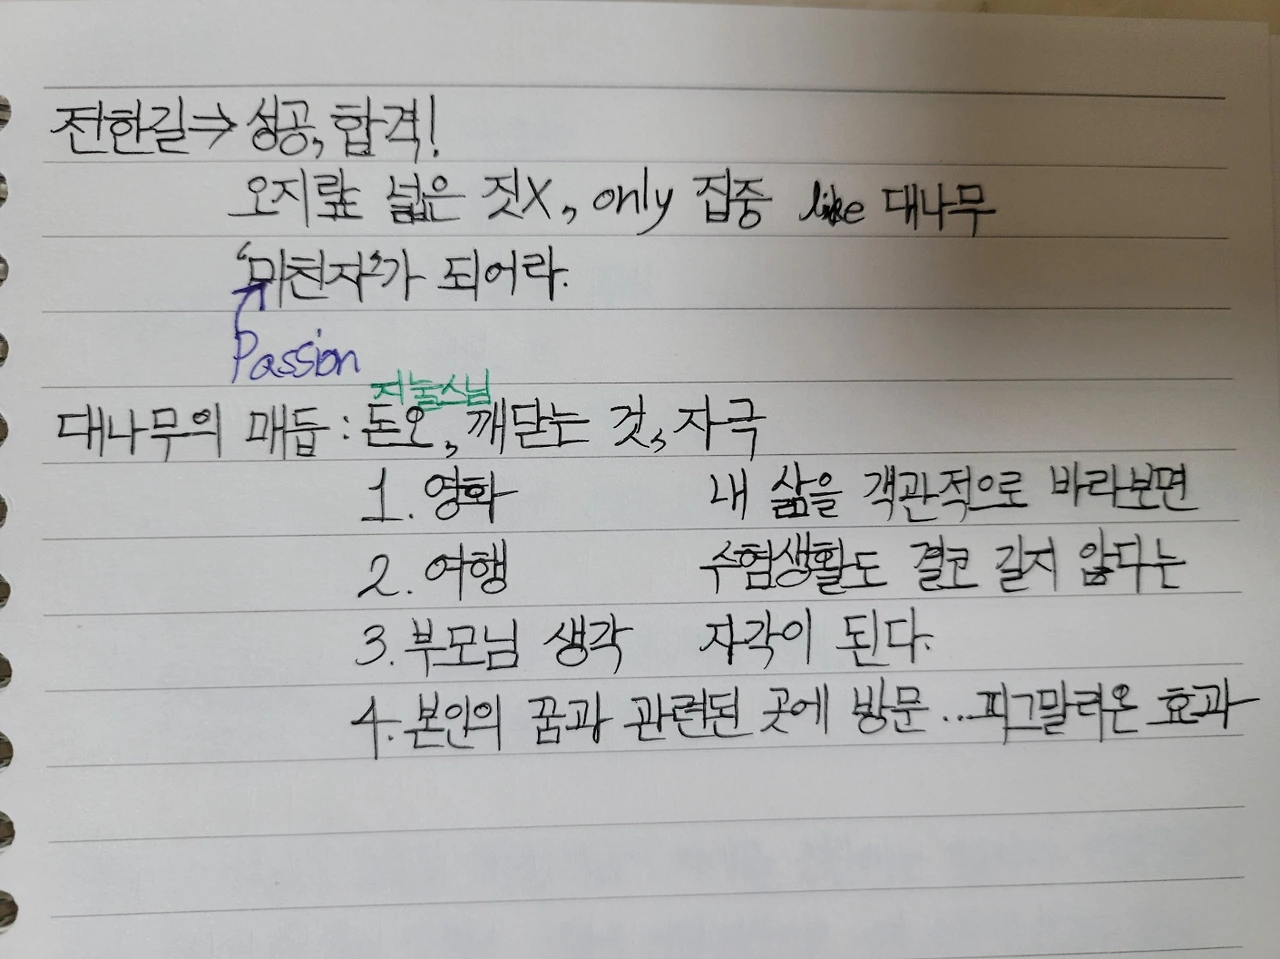 전한길⇒ 성공, 합격!
오지랖 넓은 짓X, only 집중 like 대나무
'미친자'가 되어라.
Passion
지눌스님
대나무의 매듭 : 돈오, 깨닫는 것, 자극
1. 영화 내 삶을 객관적으로 바라보면
2. 여행 수험생활도 결코 길지 않다는
3. 부모님 생각 자각이 된다.
4. 본인의 꿈과 관련된 곳에 방문...피그말리온 효과